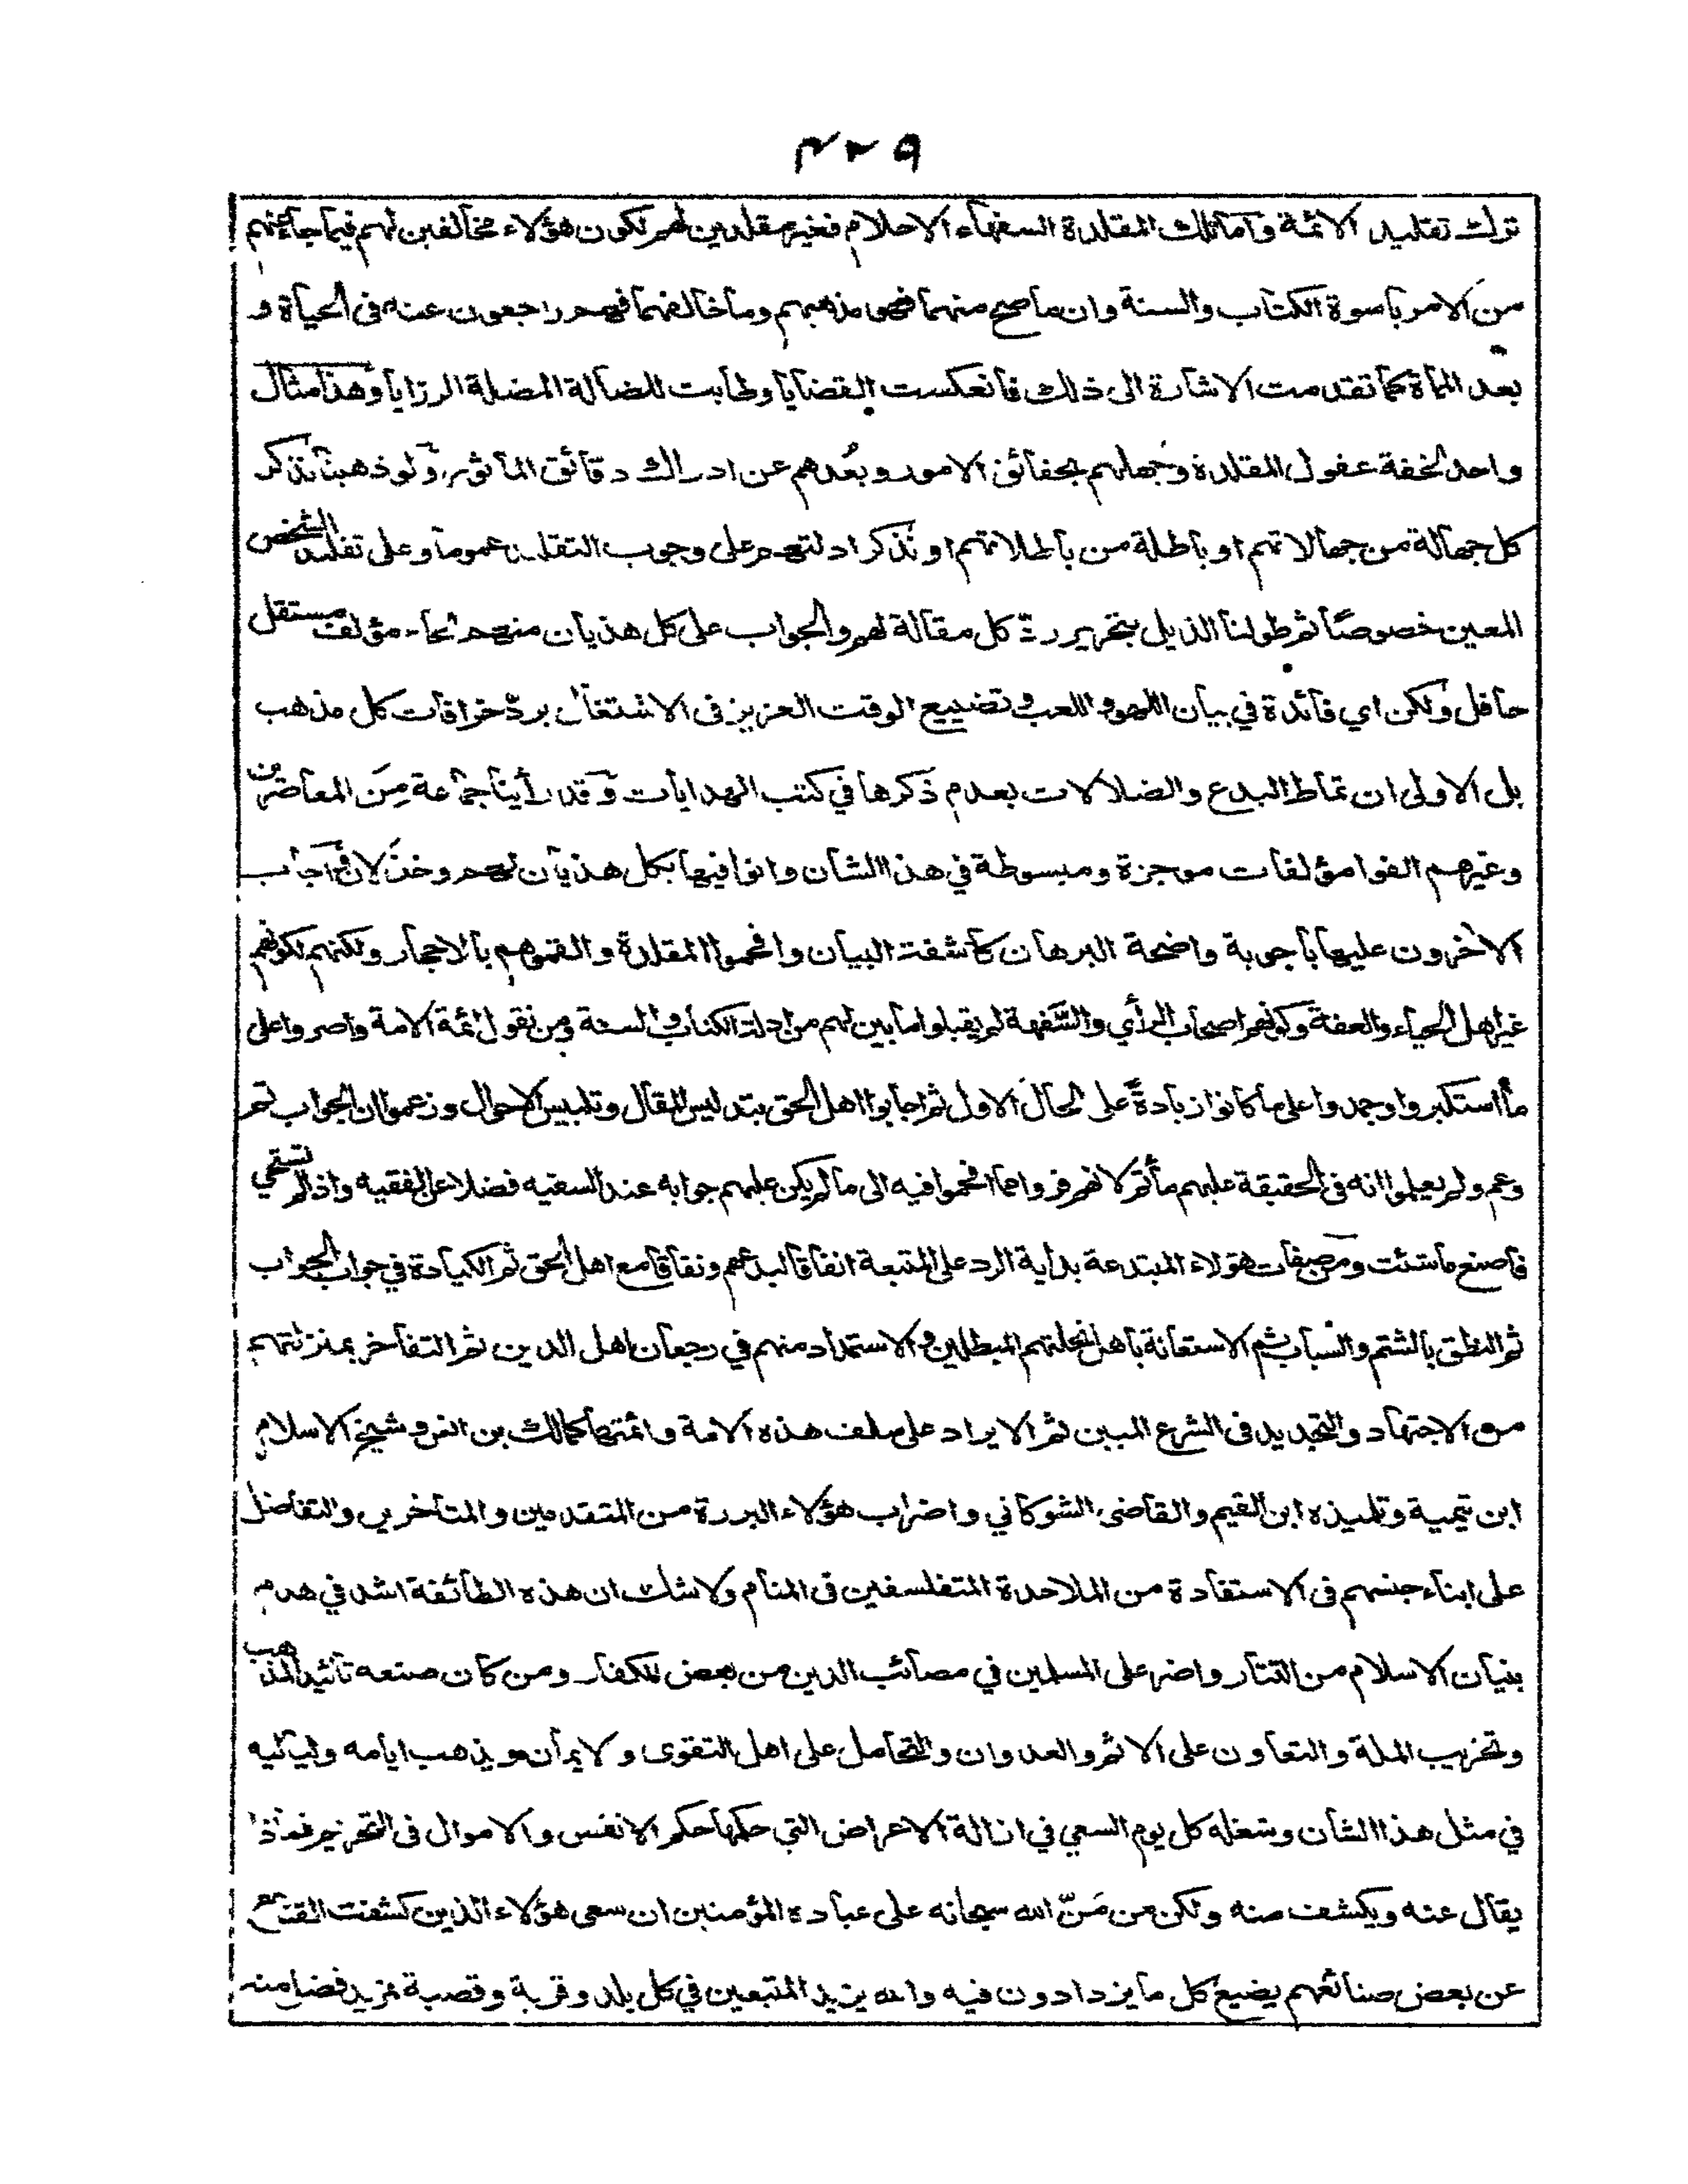 ٤٢٩
ترك تقليد الائمة واما تلك المقلدة السفهاء الاحلام فغير مقلدين لهم لكون هؤلاء مخالفين لهم فيما جاء عنهم
من الامر باسوة الكتاب والسنة وان ما صح منهما فهو مذهبهم وما خالفهما فهم راجعون عنه في الحياة و
بعد المماة كما تقدمت الاشارة الى ذلك فانعكست القضايا وطابت للضالة المضلة الرزايا وهذا مثال
واحد لخفة عقول المقلدة وجهلهم بحقائق الامور وبُعدهم عن ادراك دقائق المأثور ولو ذهبنا نذكر
كل جهالة من جهالاتهم او باطلة من باطلاتهم او نذكر ادلتهم على وجوب التقليد عموما وعلى تقليد الشخص
المعين خصوصًا ثم طولنا الذيل بتحرير ردّ كل مقالة لهم والجواب على كل هذيان منهم لجاء مؤلف مستقل
حافل ولكن اي فائدة في بيان اللهو واللعب وتضييع الوقت العزيز في الاشتغال بردّ خرافات كل مذهب
بل الاولى ان تماط البدع والضلالات بعدم ذكرها في كتب الهدايات وقد رأينا جماعة مِنَ المعاصرين
وغيرهم الفوا مؤلفات موجزة ومبسوطة في هذا الشان واتوا فيها بكل هذيان لهم وخذلان فاجاب
الاخرون عليها باجوبة واضحة البرهان كاشفة البيان وافحموا المقلدة والقموهم بالاحجار ولكنهم لكونهم
غير اهل الحياء والعفة وكونهم اصحاب الرأي والسَّفهة لم يقبلوا ما بين لهم من ادلة الكتاب والسنة ومن نقول ائمة الامة واصروا على
ما استكبروا وجمدوا على ما كانوا زيادةً على الحال الاول ثم اجابوا اهل الحق بتدليس المقال وتلبيس الاحوال وزعموا ان الجواب تم
وعم ولم يعلموا انه في الحقيقة عليهم ما تم لانهم فروا مما افحموا فيه الى ما لم يكن عليهم جوابه عند السفيه فضلا عن الفقيه واذا لم تستحي
فاصنع ما شئت ومن صفات هؤلاء المبتدعة بداية الرد على المتبعة اتفاقا لبدعهم ونفاقا مع اهل الحق ثم الكيادة في جواب الجواب
ثم النطق بالشتم والسباب ثم الاستعانة باهل نحلتهم المبطلين والاستمداد منهم في رجعان اهل الدين ثم التفاخر بمنزلتهم
من الاجتهاد والتجديد في الشرع المبين ثم الايراد على سلف هذه الامة وائمتها كمالك بن انس وشيخ الاسلام
ابن تيمية وتلميذه ابن القيم والقاضي الشوكاني واضراب هؤلاء البررة من المتقدمين والمتاخرين والتفاضل
على ابناء جنسهم في الاستفادة من الملاحدة المتفلسفين في المنام ولا شك ان هذه الطائفة اشد في هدم
بنيان الاسلام من التتار واضر على المسلمين في مصائب الدين من بعض الكفار ومن كان صنعه تائيد المذهب
وتخريب الملة والتعاون على الاثم والعدوان والتحامل على اهل التقوى والايمان هو يذهب ايامه ولياليه
في مثل هذا الشان وشغله كل يوم السعي في ازالة الاعراض التي حكمها حكم الانفس والاموال في التحريم فماذا
يقال عنه ويكشف منه ولكن من مَنّ الله سبحانه على عباده المؤمنين ان سعي هؤلاء الذين كشفت القناع
عن بعض صنائعهم يضيع كل ما يزدادون فيه والله يزيد المتبعين في كل بلد وقرية وقصبة مزيد فضل منه